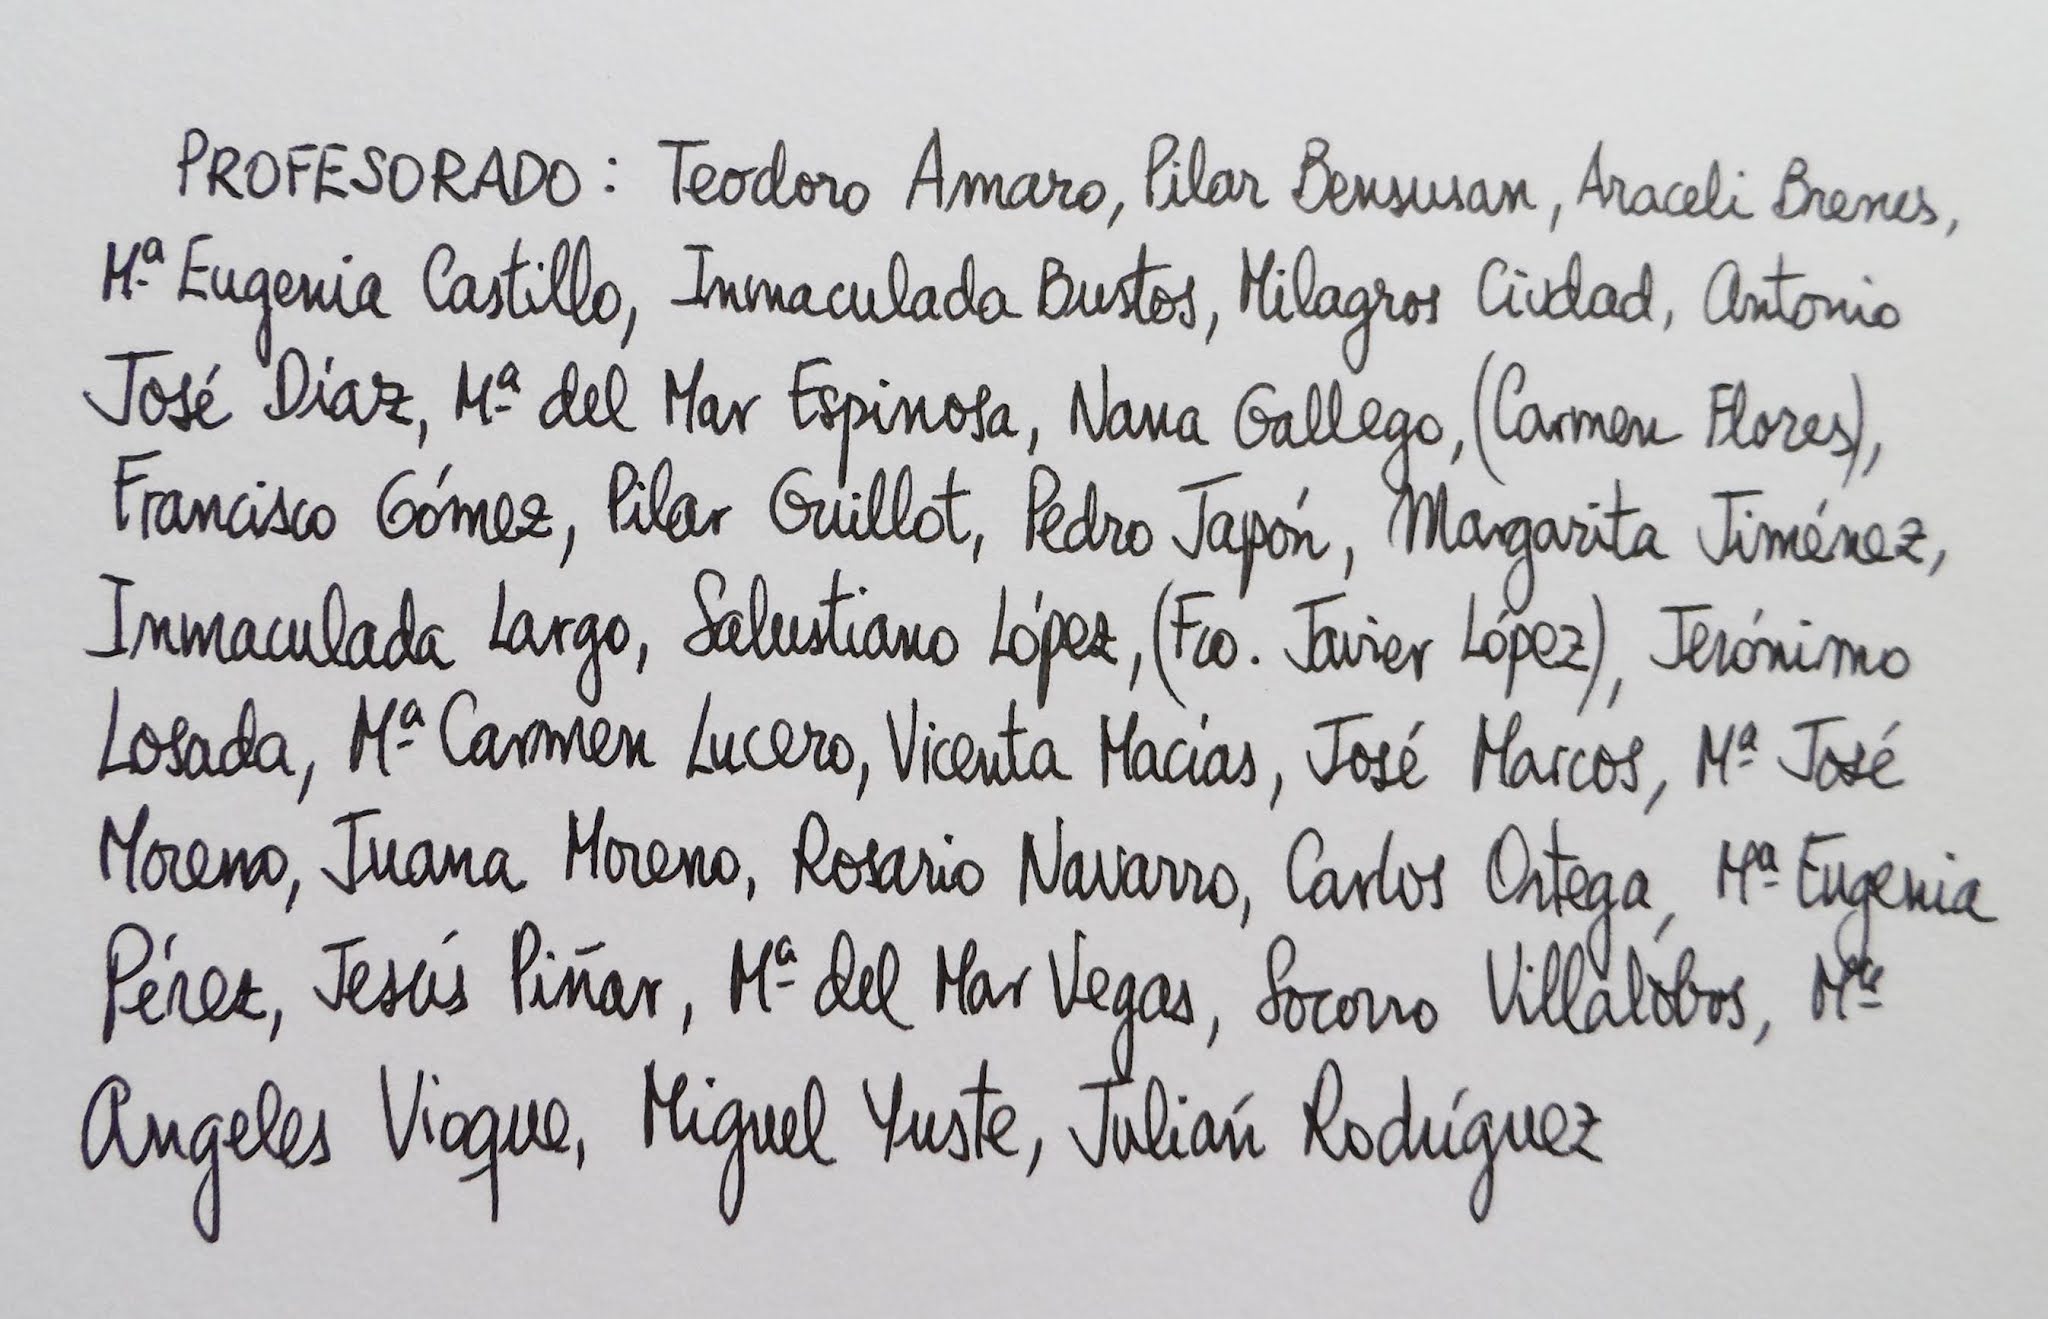 PROFESORADO: Teodoro Amaro, Pilar Bensusan, Araceli Brenes,
Mª Eugenia Castillo, Inmaculada Bustos, Milagros Ciudad, Antonio
José Díaz, Mª del Mar Espinosa, Nana Gallego, (Carmen Flores),
Francisco Gómez, Pilar Guillot, Pedro Japón, Margarita Jiménez,
Inmaculada Largo, Salustiano López, (Fco. Javier López), Jerónimo
Losada, Mª Carmen Lucero, Vicenta Macías, José Marcos, Mª José
Moreno, Juana Moreno, Rosario Navarro, Carlos Ortega, Mª Eugenia
Pérez, Jesús Piñar, Mª del Mar Vegas, Socorro Villalobos, Mª
Angeles Vioque, Miguel Yuste, Julián Rodríguez